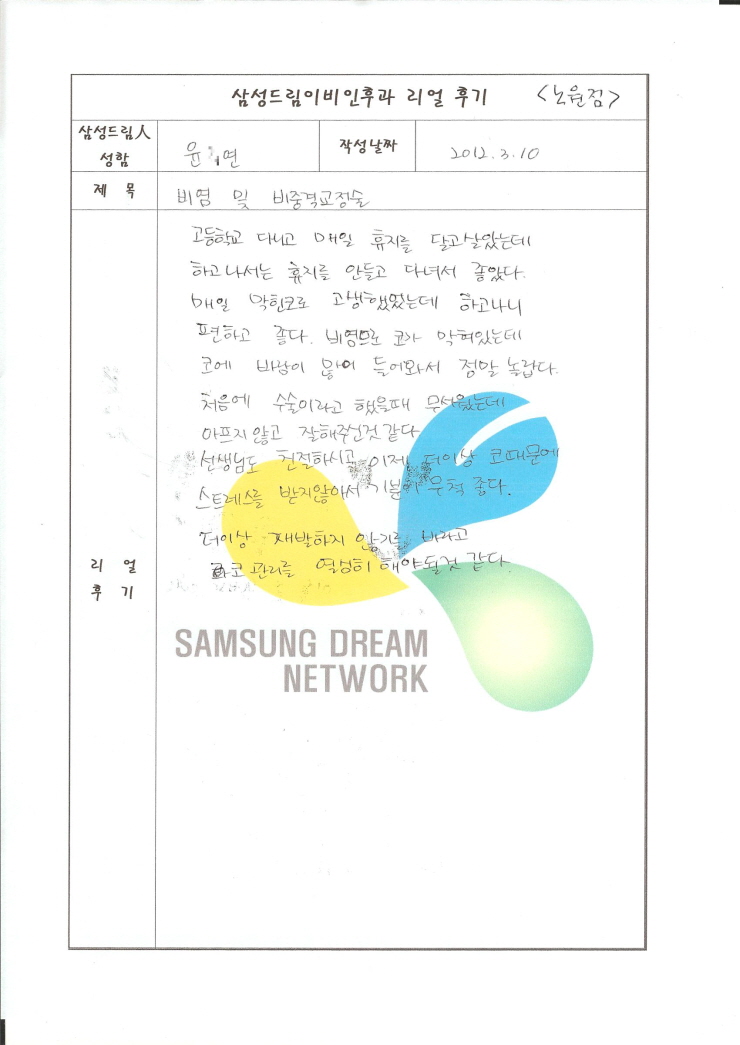 삼성드림이비인후과 리얼 후기 <노원점>
삼성드림人
성함
윤 연
작성날짜
2012. 3. 10
제 목
비염 및 비중격교정술
고등학교 다니고 매일 휴지를 달고살았는데
하고나서는 휴지를 안들고 다녀서 좋았다.
매일 막힌코로 고생했었는데 하고나니
편하고 좋다. 비염으로 코가 막혀있는데
코에 바람이 많이 들어와서 정말 놀랍다.
처음에 수술이라고 했을때 무서웠는데
아프지않고 잘해주신것같다
선생님도 친절하시고 이제 더이상 코때문에
스트레스를 받지않아서 기분이 무척 좋다.
더이상 재발하지 않기를 바라고
코관리를 열심히해야될것 같다.
리 얼
후 기
SAMSUNG DREAM
NETWORK